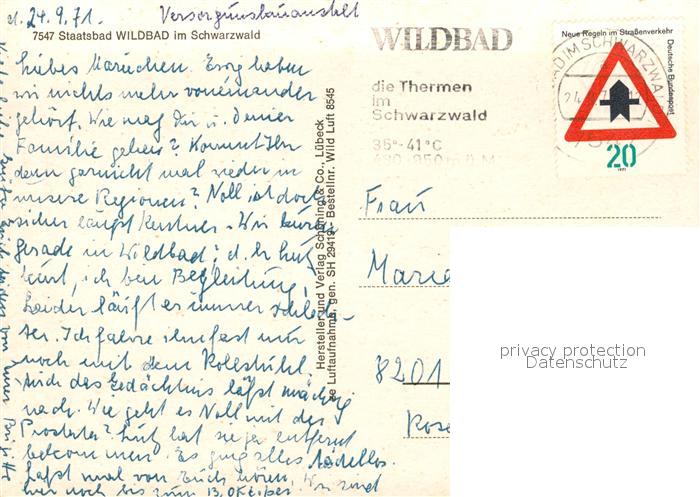 d. 24.9.71. Versorgungskuranstalt
7547 Staatsbad WILDBAD im Schwarzwald
Liebes Mariechen. Ewig haben
wir nichts mehr voneinander
gehört. Wie mag Dir u. Deiner
Familie gehen? Kommt Ihr
denn garnicht mal wieder in
unsere Regionen? Noll ist doch
sicher längst Rentner. Wir kuren
gerade in Wildbad; d. h.
kurt, ich bin Begleitung.
Leider läuft es immer schlech-
ter. Ich fahre ihn fast nur
noch mit dem Rollstuhl.
Auch das Gedächtnis läßt mächtig
nach. Wie geht es Noll mit der
Prostata? hat sie ja entfernt
bekommen. Es ging alles tadellos.
Laßt mal von Euch hören. Wir sind
hier noch bis zum 13. Oktober.
Hersteller und Verlag Schöning & Co., Lübeck
Luftaufnahme, gen. SH 29419 Bestellnr. Wild Luft 8545
WILDBAD
die Thermen
im
Schwarzwald
35°-41°C
430-950 m ü M
Neue Regeln im Straßenverkehr
Deutsche Bundespost
20
1971
BAD IM SCHWARZWA
Frau
Maria
8201
Rose
privacy protection
Datenschutz